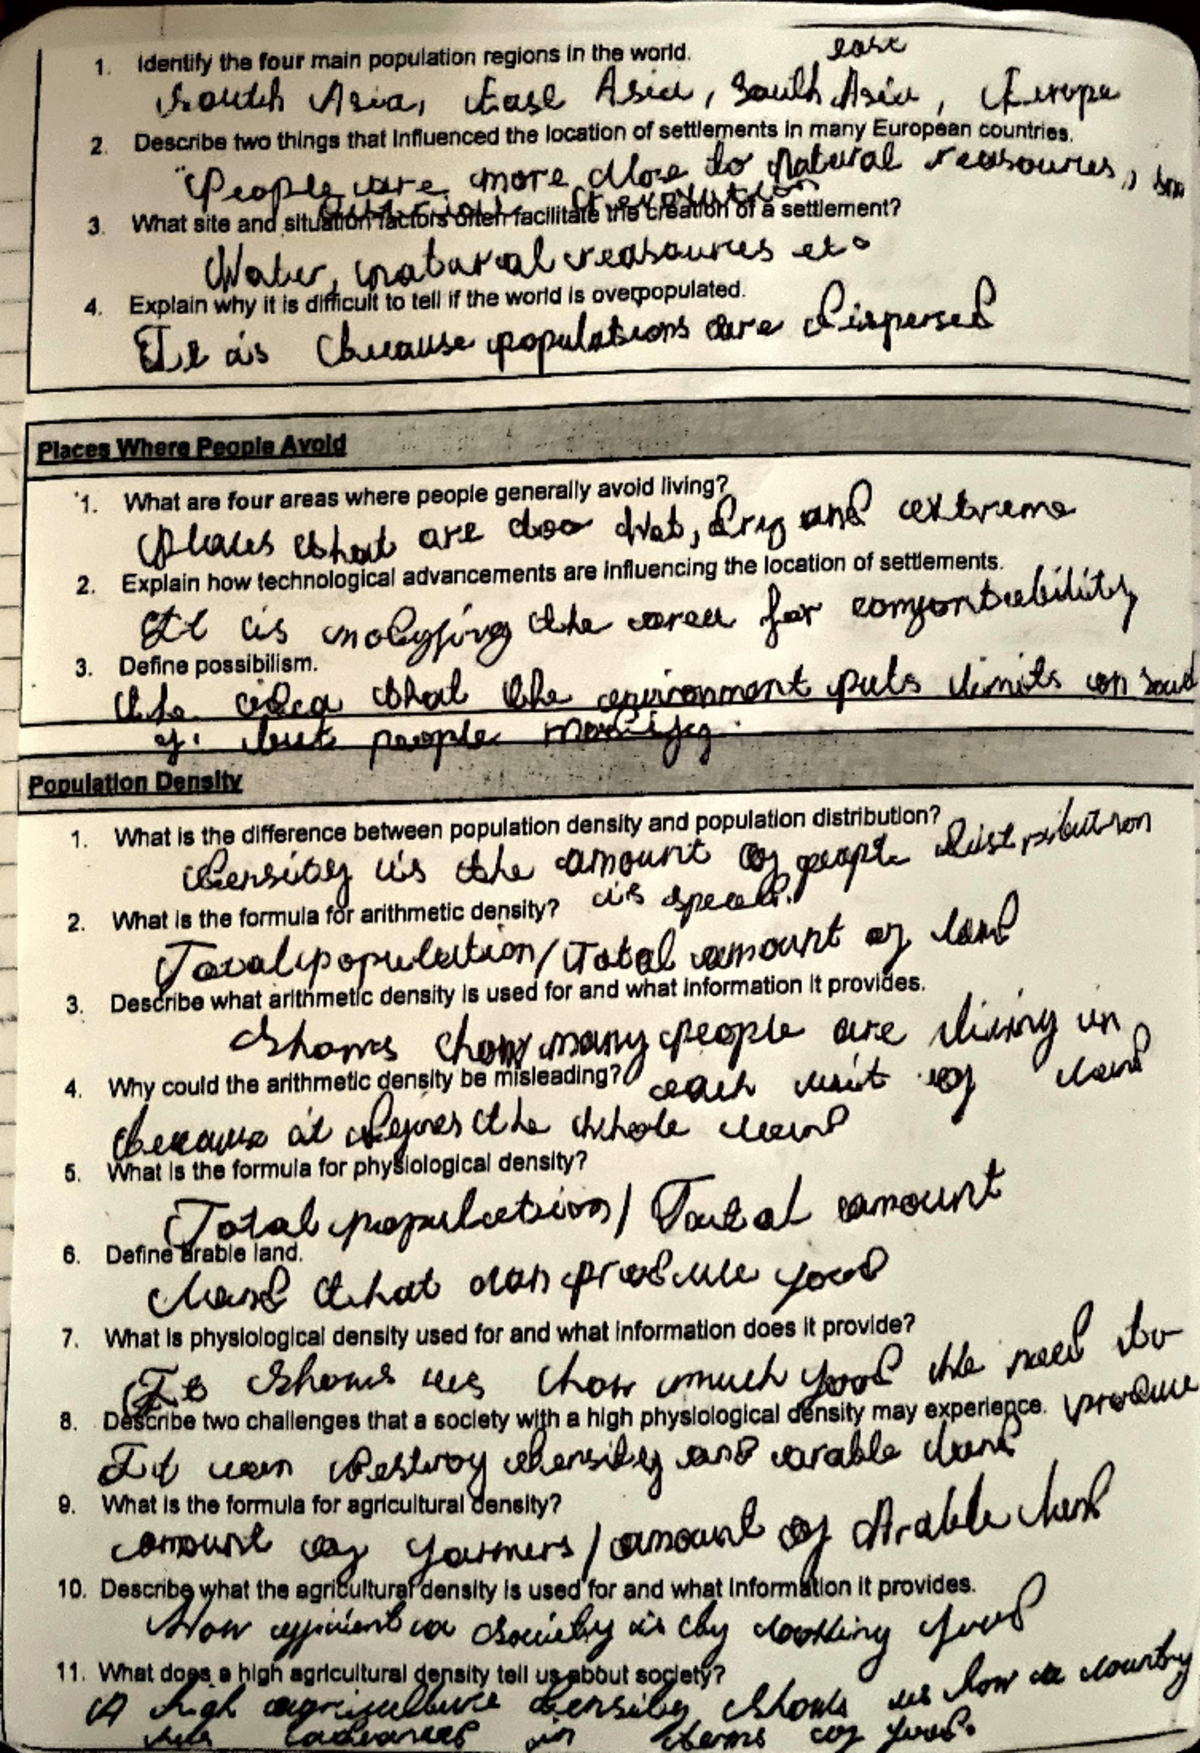 1. Identify the four main population regions in the world.
east
South Asia, East Asia, South Asia, Europe
2. Describe two things that influenced the location of settlements in many European countries.
People are more close to natural reasources,
3. What site and situation factors often facilitate the creation of a settlement?
Water, natural reasources etc
4. Explain why it is difficult to tell if the world is overpopulated.
It is because populations are dispersed
Places Where People Avoid
1. What are four areas where people generally avoid living?
Places that are too hot, dry and extreme
2. Explain how technological advancements are influencing the location of settlements.
It is the area for
3. Define possibilism.
the idea that the environment puts limits on
but people
Population Density
1. What is the difference between population density and population distribution?
Density is the amount of people distribution
is
2. What is the formula for arithmetic density?
Total population/Total amount of land
3. Describe what arithmetic density is used for and what information it provides.
Shows how many people are living in
4. Why could the arithmetic density be misleading?
each unit of land
because it the whole land
5. What is the formula for physiological density?
Total population/ Total amount
6. Define arable land.
land that can produce food
7. What is physiological density used for and what information does it provide?
It shows us how much food the need to
8. Describe two challenges that a society with a high physiological density may experience.
produce
It can destroy density and arable land
9. What is the formula for agricultural density?
amount of farmers/amount of Arable land
10. Describe what the agricultural density is used for and what information it provides.
How efficient a society is by food
11. What does a high agricultural density tell us about society?
A high agriculture density shows us how a country
in terms of food.